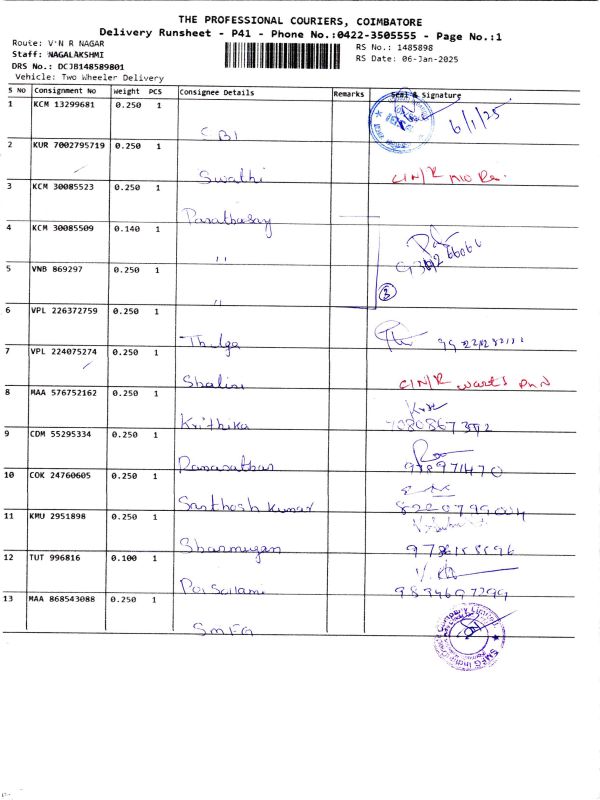 THE PROFESSIONAL COURIERS, COIMBATORE
Delivery Runsheet - P41 - Phone No.:0422-3505555 - Page No.:1
Route: V'N R NAGAR
RS No.: 1485898
Staff: NAGALAKSHMI
RS Date: 06-Jan-2025
DRS No.: DCJB148589801
Vehicle: Two Wheeler Delivery
S NO Consignment No Weight PCS Consignee Details Remarks Seal & Signature
1 KCM 13299681 0.250 1
CBI 6/1/25
2 KUR 7002795719 0.250 1
Swathi
3 KCM 30085523 0.250 1
4 KCM 30085509 0.140 1
"
5 VNB 869297 0.250 1
" 3
6 VPL 226372759 0.250 1
Thulga
7 VPL 224075274 0.250 1
Shalini
8 MAA 576752162 0.250 1
Krithika
9 CDM 55295334 0.250 1
10 COK 24760605 0.250 1
Santhosh Kumar
11 KMU 2951898 0.250 1
Sharmugan
12 TUT 996816 0.100 1
13 MAA 868543088 0.250 1
SMFG